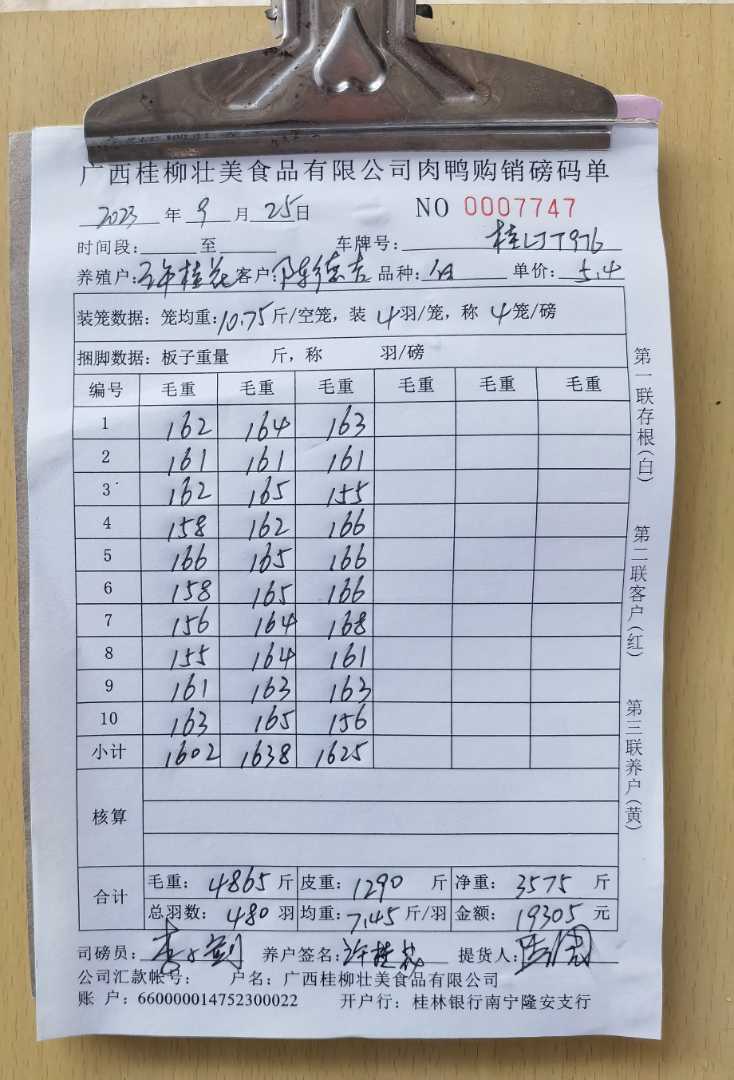 广西桂柳壮美食品有限公司肉鸭购销磅码单
2023 年 9 月 25 日 NO 0007747
时间段: 至 车牌号: 桂 T976
养殖户: 许桂花 客户: 陈德吉 品种: 白 单价: 5.4
装笼数据: 笼均重: 10.75 斤/空笼, 装 4 羽/笼, 称 4 笼/磅
捆脚数据: 板子重量 斤, 称 羽/磅
编号 毛重 毛重 毛重 毛重 毛重 毛重
1 162 164 163
2 161 161 161
3 162 165 155
4 158 162 166
5 166 165 166
6 158 165 166
7 156 164 168
8 155 164 161
9 161 163 163
10 163 165 156
小计 1602 1638 1625
核算
合计 毛重: 4865 斤 皮重: 1290 斤 净重: 3575 斤
总羽数: 480 羽 均重: 7.45 斤/羽 金额: 19305 元
司磅员: 养户签名: 许桂花 提货人:
公司汇款帐号: 户名: 广西桂柳壮美食品有限公司
账 户: 660000014752300022 开户行: 桂林银行南宁隆安支行
第一联存根(白)
第二联客户(红)
第三联养户(黄)